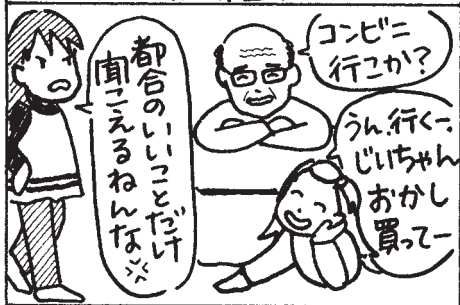 コンビニ
行こか？
うん、行くー。
じいちゃん
おかし
買ってー
都合のいいことだけ
聞こえるねんな